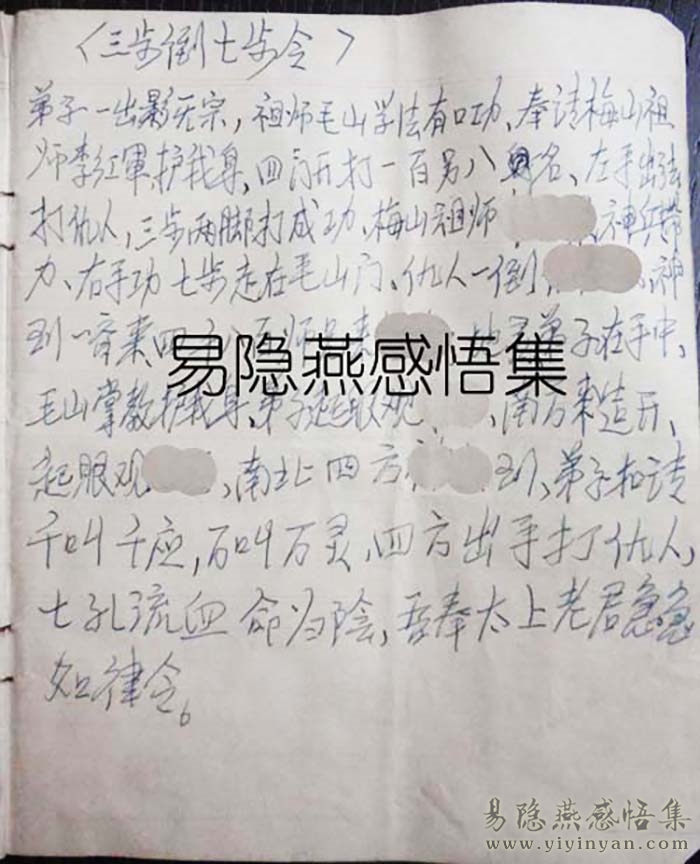 〈三步倒七步令〉
弟子一出影无宗，祖师毛山学法有口功、奉请梅山祖
师李红軍、护我身、四门开打一百另八名、左手出法
打仇人，三步两脚打成功、梅山祖师神兵
力、右手功七步走在毛山门、仇人一倒、神
到一齐来、四弟子在手中、
毛山掌教护我身、弟子起眼观、南方来造开、
起眼观、南北四方到、弟子和请
千叫千应，万叫万灵、四方出手打仇人，
七孔流血命归陰，吾奉太上老君急急
如律令。
易隐燕感悟集
易隐燕感悟集
www.yiyinyan.com